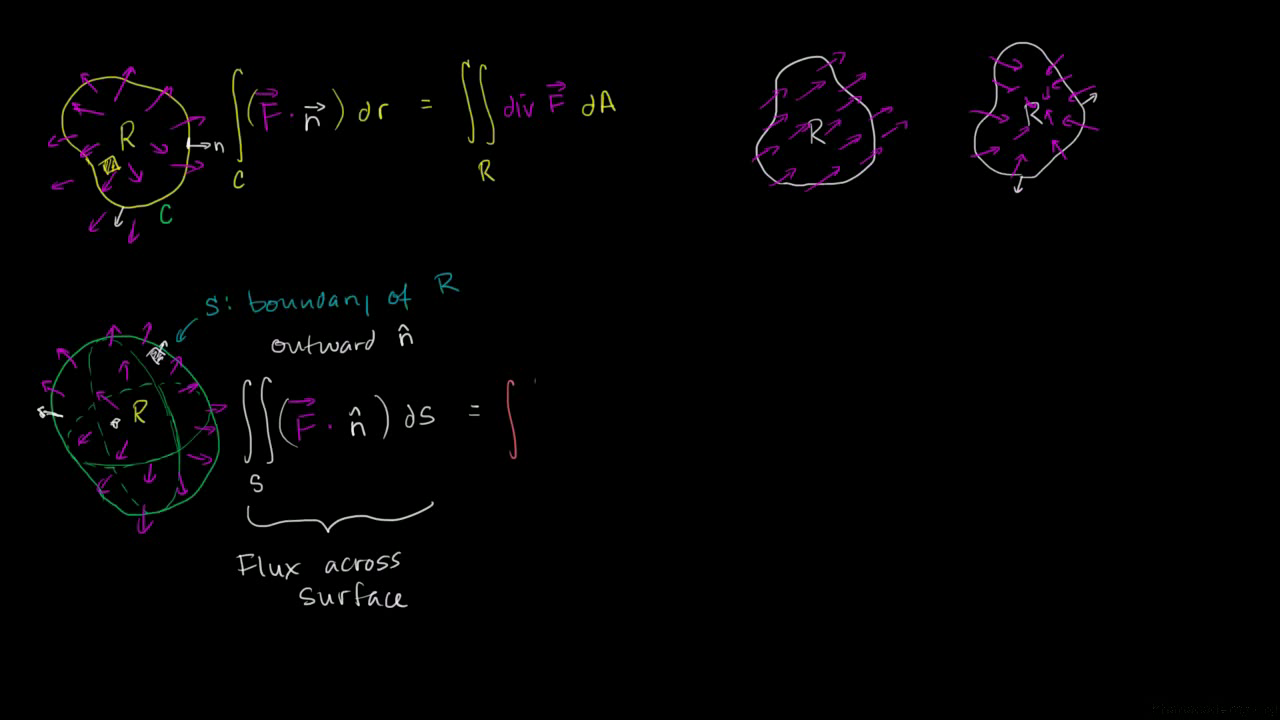 R
n
C
∫_C (F⃗ · n⃗) dr = ∬_R div F⃗ dA
R
R
S: boundary of R
outward n̂
R
∬_S (F⃗ · n̂) dS = ∫
Flux across
surface